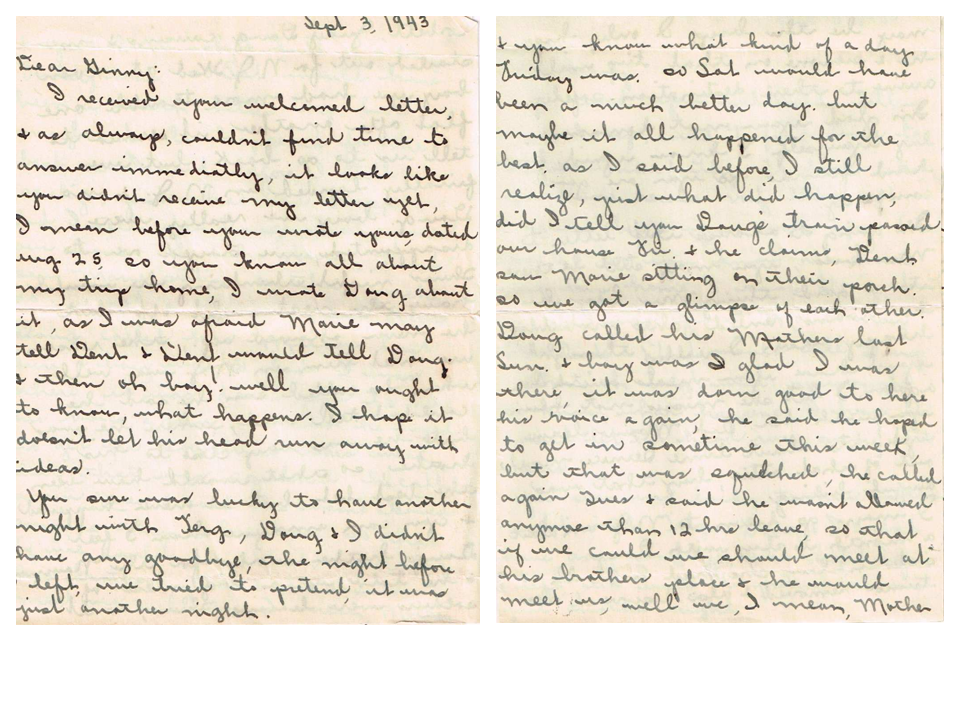 Sept 3, 1943
Dear Ginny:
I received your welcomed letter,
& as always, couldn't find time to
answer immediatly, it looks like
you didn't receive my letter yet,
I mean before you wrote yours, dated
Aug 25, so you know all about
my trip home, I wrote Doug about
it, as I was afraid Marie may
tell Dent & Dent would tell Doug.
& then oh boy! well you ought
to know, what happens. I hope it
doesn't let his head run away with
ideas.
You sure was lucky to have another
night with Ferg, Doug & I didn't
have any goodbye, the night before
I left, we tried to pretend, it was
just another night.
& you know what kind of a day
Friday was. so Sat would have
been a much better day. but
maybe it all happened for the
best. as I said before, I still
realize, just what did happen,
did I tell you Doug's train passed
our house Fri. & he claims, Dent
saw Marie sitting on their porch.
so we got a glimpse of each other.
Doug called his Mothers last
Sun. & boy was I glad I was
there, it was darn good to here
his voice again, he said he hoped
to get in sometime this week,
but that was squelched, he called
again Tues & said he wasn't allowed
anymore than 12 hrs leave, so that
if we could we should meet at
his brothers place & he would
meet us, well we, I mean, Mother